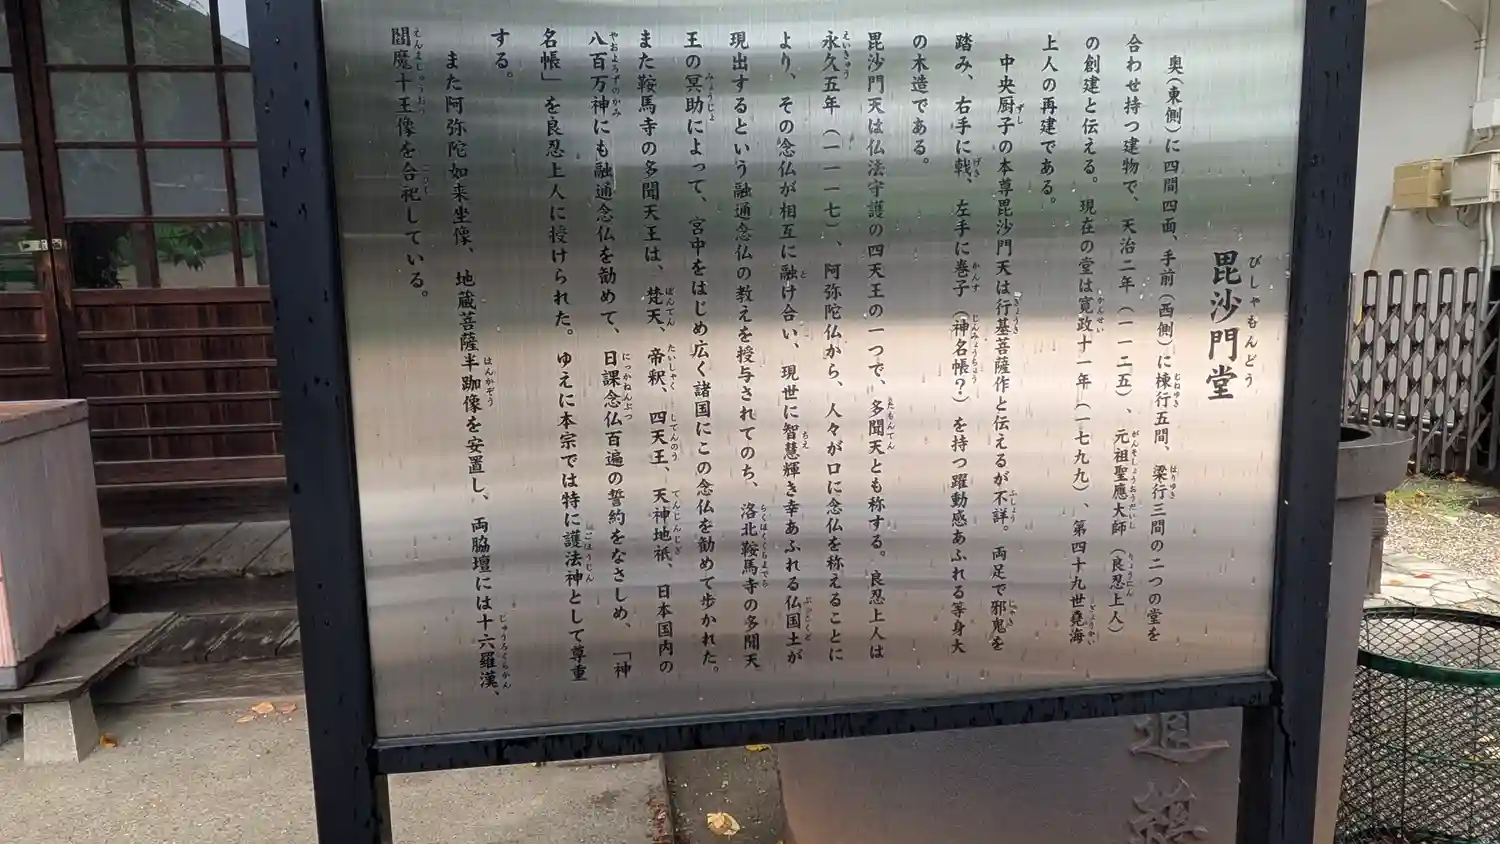 毘沙門堂
奥（東側）に四間四面、手前（西側）に棟行五間、梁行三間の二つの堂を
合わせ持つ建物で、天治二年（一一二五）、元祖聖應大師（良忍上人）
の創建と伝える。現在の堂は寛政十一年（一七九九）、第四十九世堯海
上人の再建である。
中央厨子の本尊毘沙門天は行基菩薩作と伝えるが不詳。両足で邪鬼を
踏み、右手に戟、左手に巻子（神名帳？）を持つ躍動感あふれる等身大
の木造である。
毘沙門天は仏法守護の四天王の一つで、多聞天とも称する。良忍上人は
永久五年（一一一七）、阿弥陀仏から、人々が口に念仏を称えることに
より、その念仏が相互に融け合い、現世に智慧輝き幸あふれる仏国土が
現出するという融通念仏の教えを授与されてのち、洛北鞍馬寺の多聞天
王の冥助によって、宮中をはじめ広く諸国にこの念仏を勧めて歩かれた。
また鞍馬寺の多聞天王は、梵天、帝釈、四天王、天神地祇、日本国内の
八百万神にも融通念仏を勧めて、日課念仏百遍の誓約をなさしめ、「神
名帳」を良忍上人に授けられた。ゆえに本宗では特に護法神として尊重
する。
また阿弥陀如来坐像、地蔵菩薩半跏像を安置し、両脇壇には十六羅漢、
閻魔十王像を合祀している。